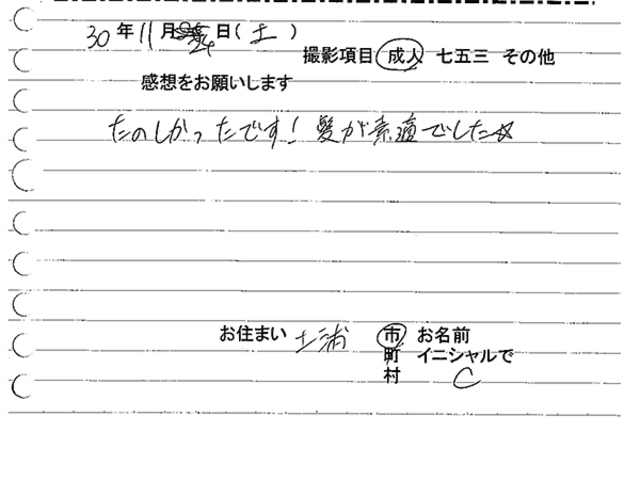 30年11月24日(土)
撮影項目 成人 七五三 その他
感想をお願いします
たのしかったです！髪が素適でした☆
お住まい 土浦 市 お名前
町 イニシャルで
村 C